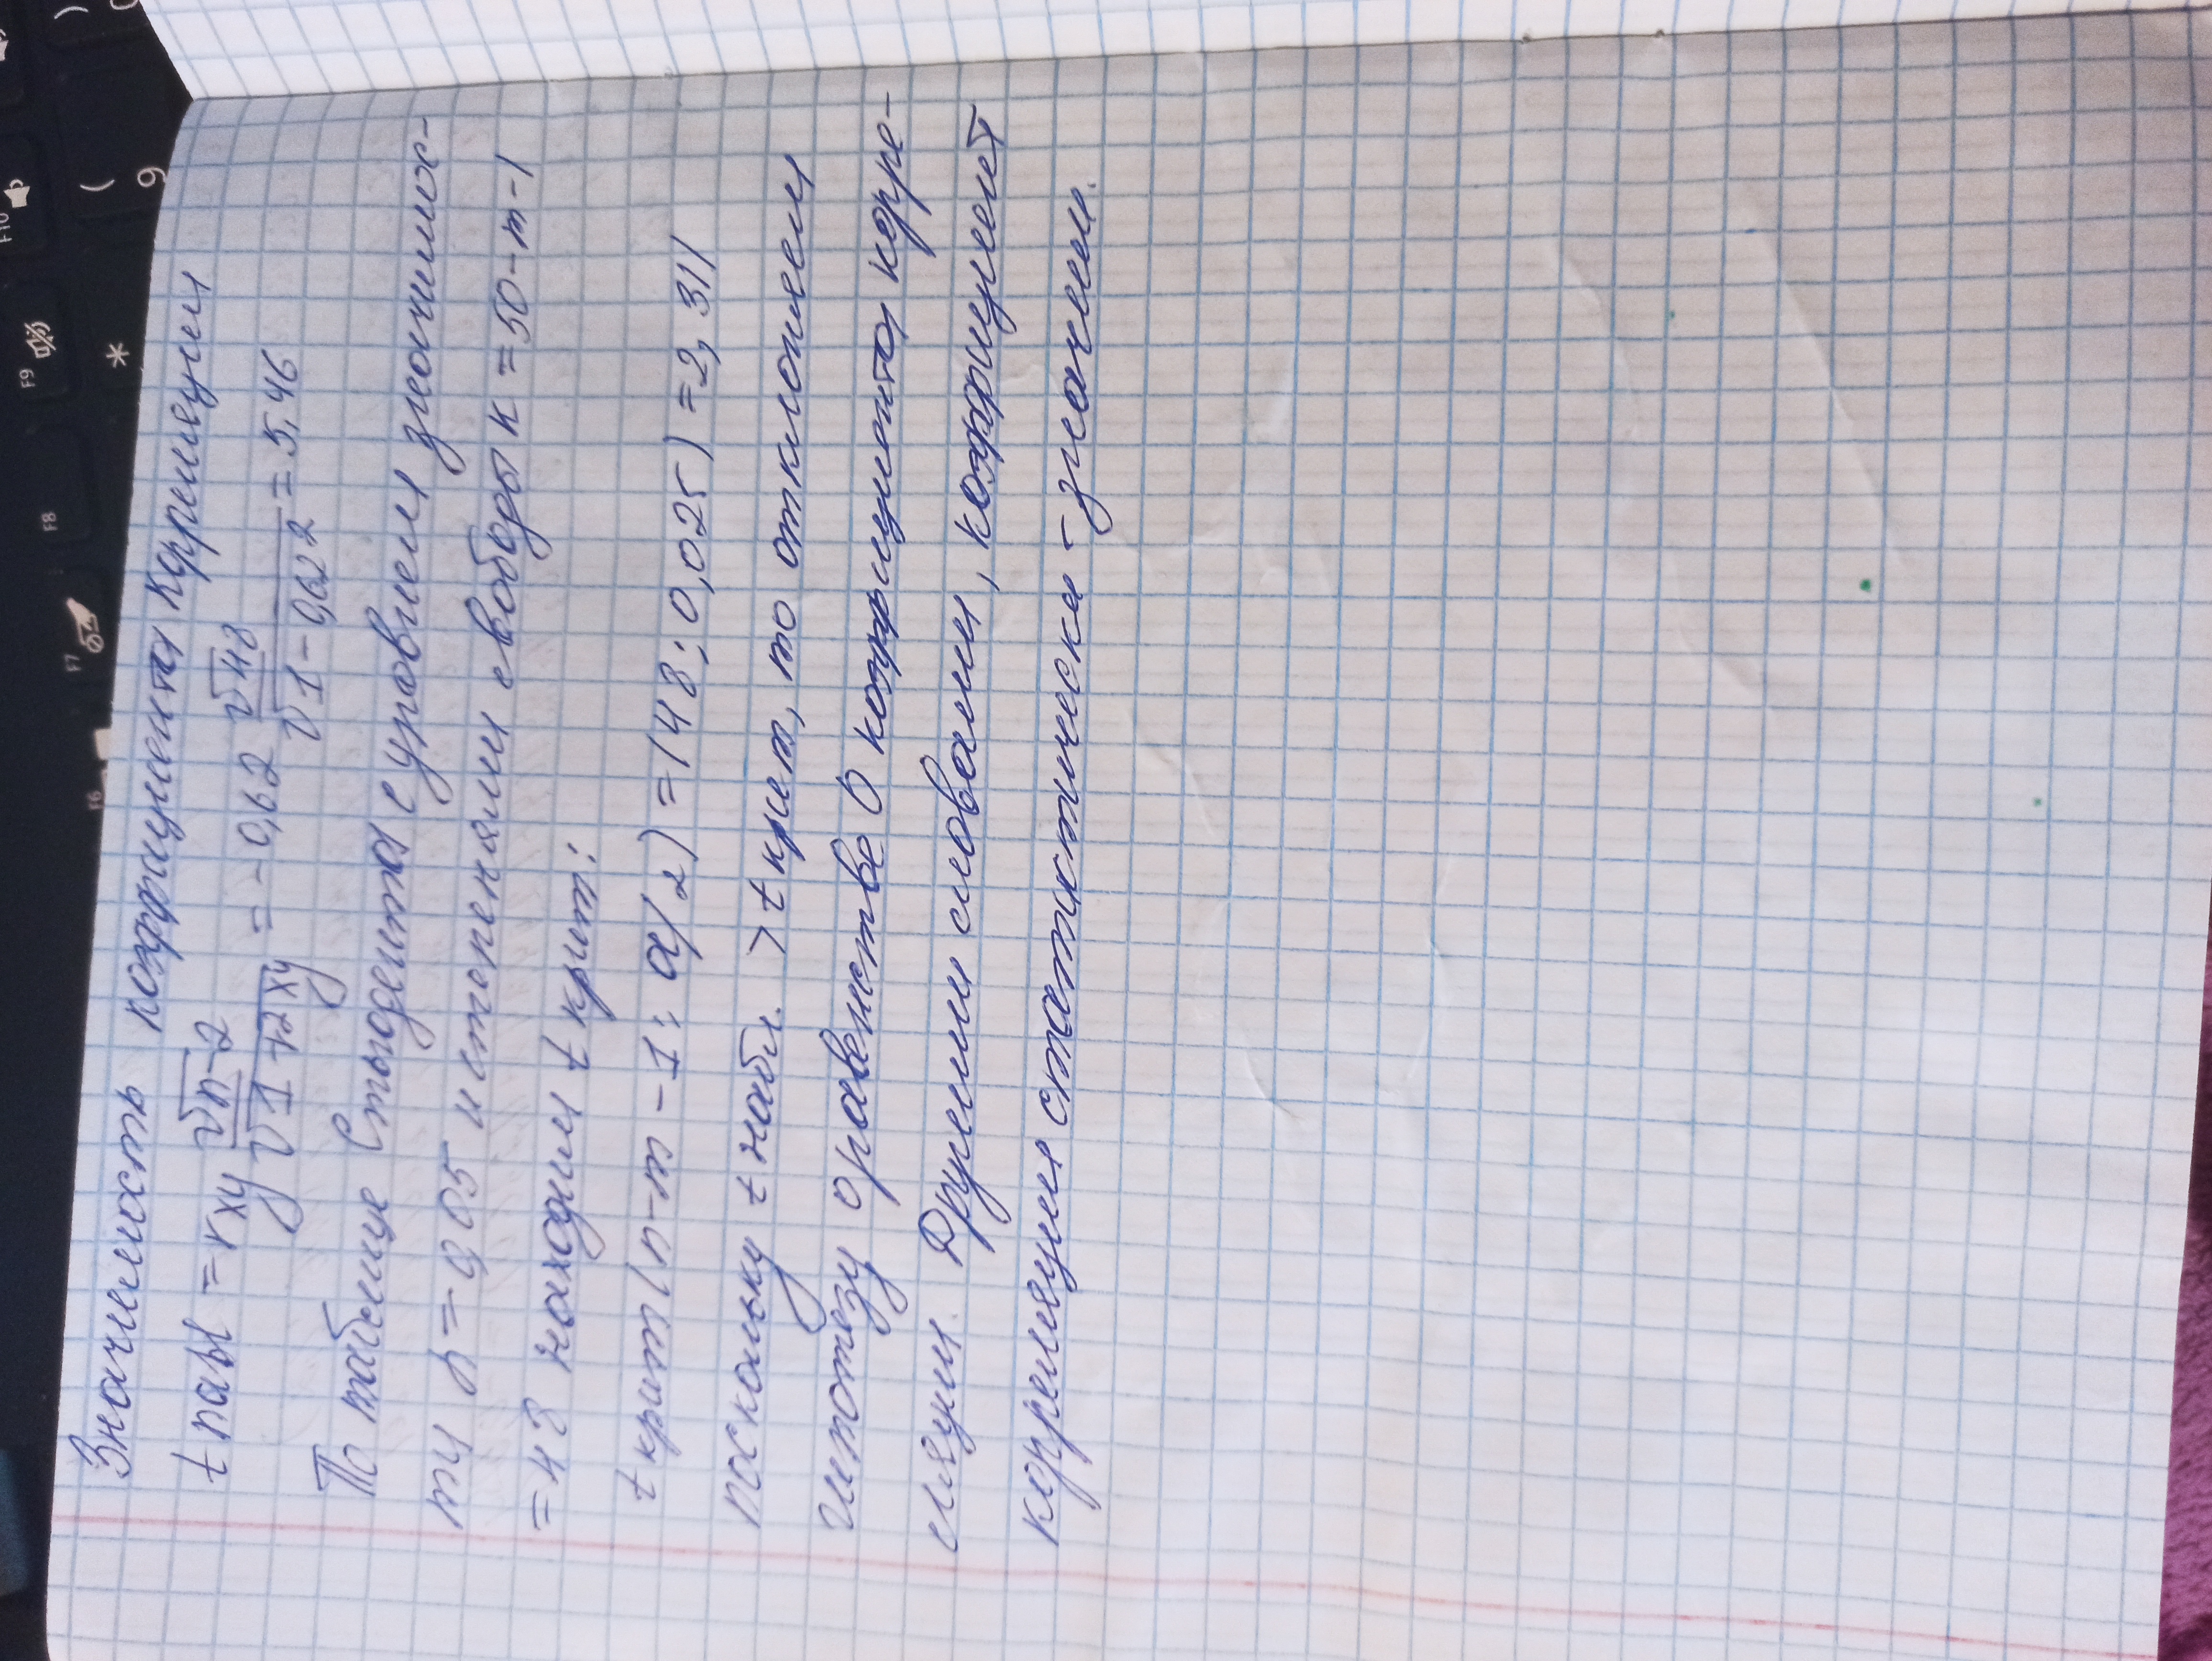 Значимость коэффициента корреляции
t набл = rxy √n-2 / √1-r2xy = -0,62 √48 / √1-0,622 = 5,46
По таблице Стьюдента с уровнем значимос-
ти α = 0,05 и степенями свободы к = 50-m-1
= 48 находим t крит:
t крит (n-m-1; α/2) = (48; 0,025) = 2,311
поскольку t набл. > t крит, то отклоняем
гипотезу о равенстве 0 коэффициента корре-
ляции. Другими словами, коэффициент
корреляции статистически -
значем.
F10
F9
F8
F7
F6
(
9
*
)